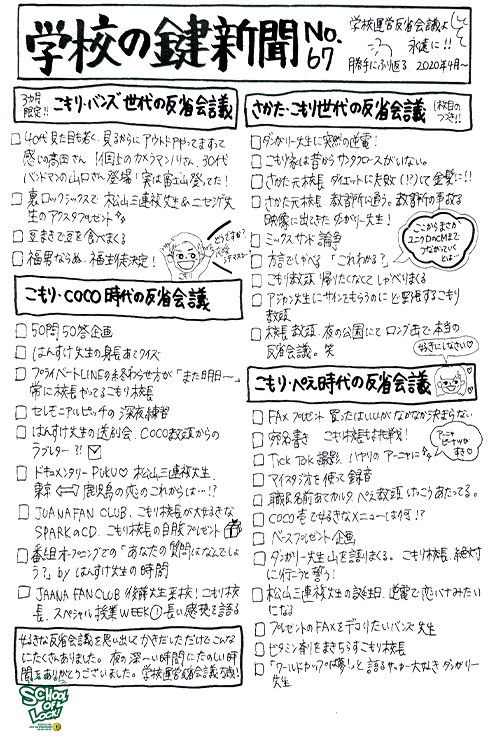 学校の鍵新聞 No.67
学校運営反省会議よ
永遠に!!
勝手にふり返る 2020年4月〜
3カ月限定!! こもり・バンズ世代の反省会議
□ 40代見た目も若く、見るからにアウトドアやってますって
感じの高田さん
30代
バンドマンの山口さん登場!実は富士山登ってた!
□ 裏ロックシックスで 松山三連複先生&ニセジゲ先
生のアクスタプレゼント
□ 豆まきで豆を食べまくる
□ 福男ならぬ、福生徒決定!
どうですか?
こもり・COCO時代の反省会議
□ 50問50答企画
□ はんすけ先生の身長あてクイズ
□ プライベートLINEの終わらせ方が「また明日〜」
常に校長やってるこもり校長
□ セレモニアルピッチの深夜練習
□ はんすけ先生の送別会、COCO教頭からの
ラブレター?!
□ ドキュメンタリー PUKU♡ 松山三連複先生、
東京⇔鹿児島の恋のこれからは…!?
□ JUANA FAN CLUB、こもり校長が大好きな
SPARKのCD、こもり校長の自腹プレゼント
□ 番組オープニングでの「あなたの質問はなんでしょ
う?」by はんすけ先生の時間
□ JAANA FAN CLUB 先生来校!こもり校
長、スペシャル授業WEEK①長い感想を語る
好きな反省会議を思い出してかきだしただけでこんな
にたくさんありました。夜の深〜い時間にたのしい時
間をありがとうございました。学校運営反省会議
SCHOOL OF LOCK!
さかた・こもり世代の反省会議 (1枚目のつづき!!)
□ ダンガリー先生に突然の逆電!
□ こもり家は昔からサンタクロースがいない。
□ さかた元校長 ダイエットに失敗(!?)して金髪に!!
□ さかた元校長 教習所に通う。教習所の事故
映像に出てきたダンガリー先生!
□ ミックスサンド論争
□ 方言でしゃべる「これわかる?」
ここからまさか
ユニクロのCMまで
つながっていく
とは…
□ こもり教頭 帰りたくなくてしゃべりまくる
□ アジカン先生にサインをもらうのにど緊張するこもり
教頭
□ 校長教頭、夜の公園にて ロング缶で本当の
反省会議。笑
好きにしなさい♡
こもり・ぺえ時代の反省会議
□ FAXプレゼント 買ったはいいがなかなか決まらない
□ 宛名書き こもり校長も大苦戦!
□ Tick Tok撮影、ハヤりのアーニャに
アーニャ
ピーナツが
すき♡
□ アイスタジオを使って録音
□ 職員名前あてカルタ ぺえ教頭 けっこうあたってる。
□ COCO壱で好きなメニューは何!?
□ ベースプレゼント企画
□ ダンガリー先生 山を語りまくる。こもり校長、絶対
に行こうと誓う!
□ 松山三連複先生の誕生日、逆電で恋バナみたい
になる
□ プレゼントのFAXをデコりたいバンズ先生
□ ビタミン剤をまきちらすこもり校長
□ 「ワールドカップは夢」と語るサッカー大好きダンガリー
先生